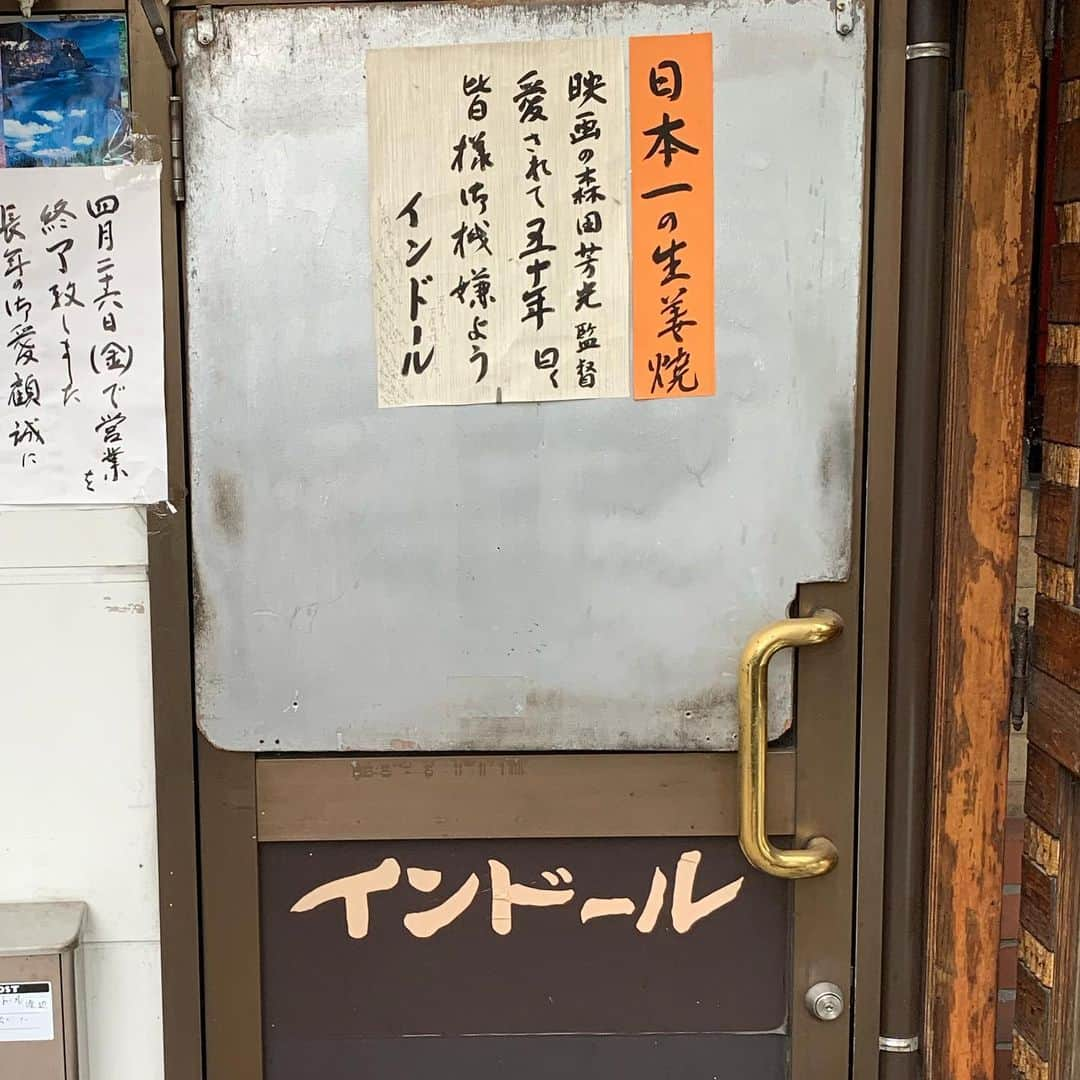 日本一の生姜焼
映画の森田芳光監督
愛されて五十年 曰く
皆様御機嫌よう
インドール
四月二十六日(金)で営業を
終了致しました
長年の御愛顧誠に
インドール